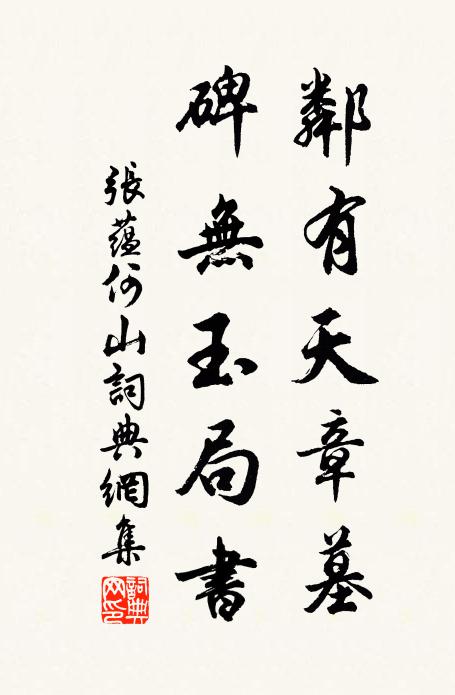 鄰有天章墓
碑無玉局書
張蘊何山詞典網集
詞典網印